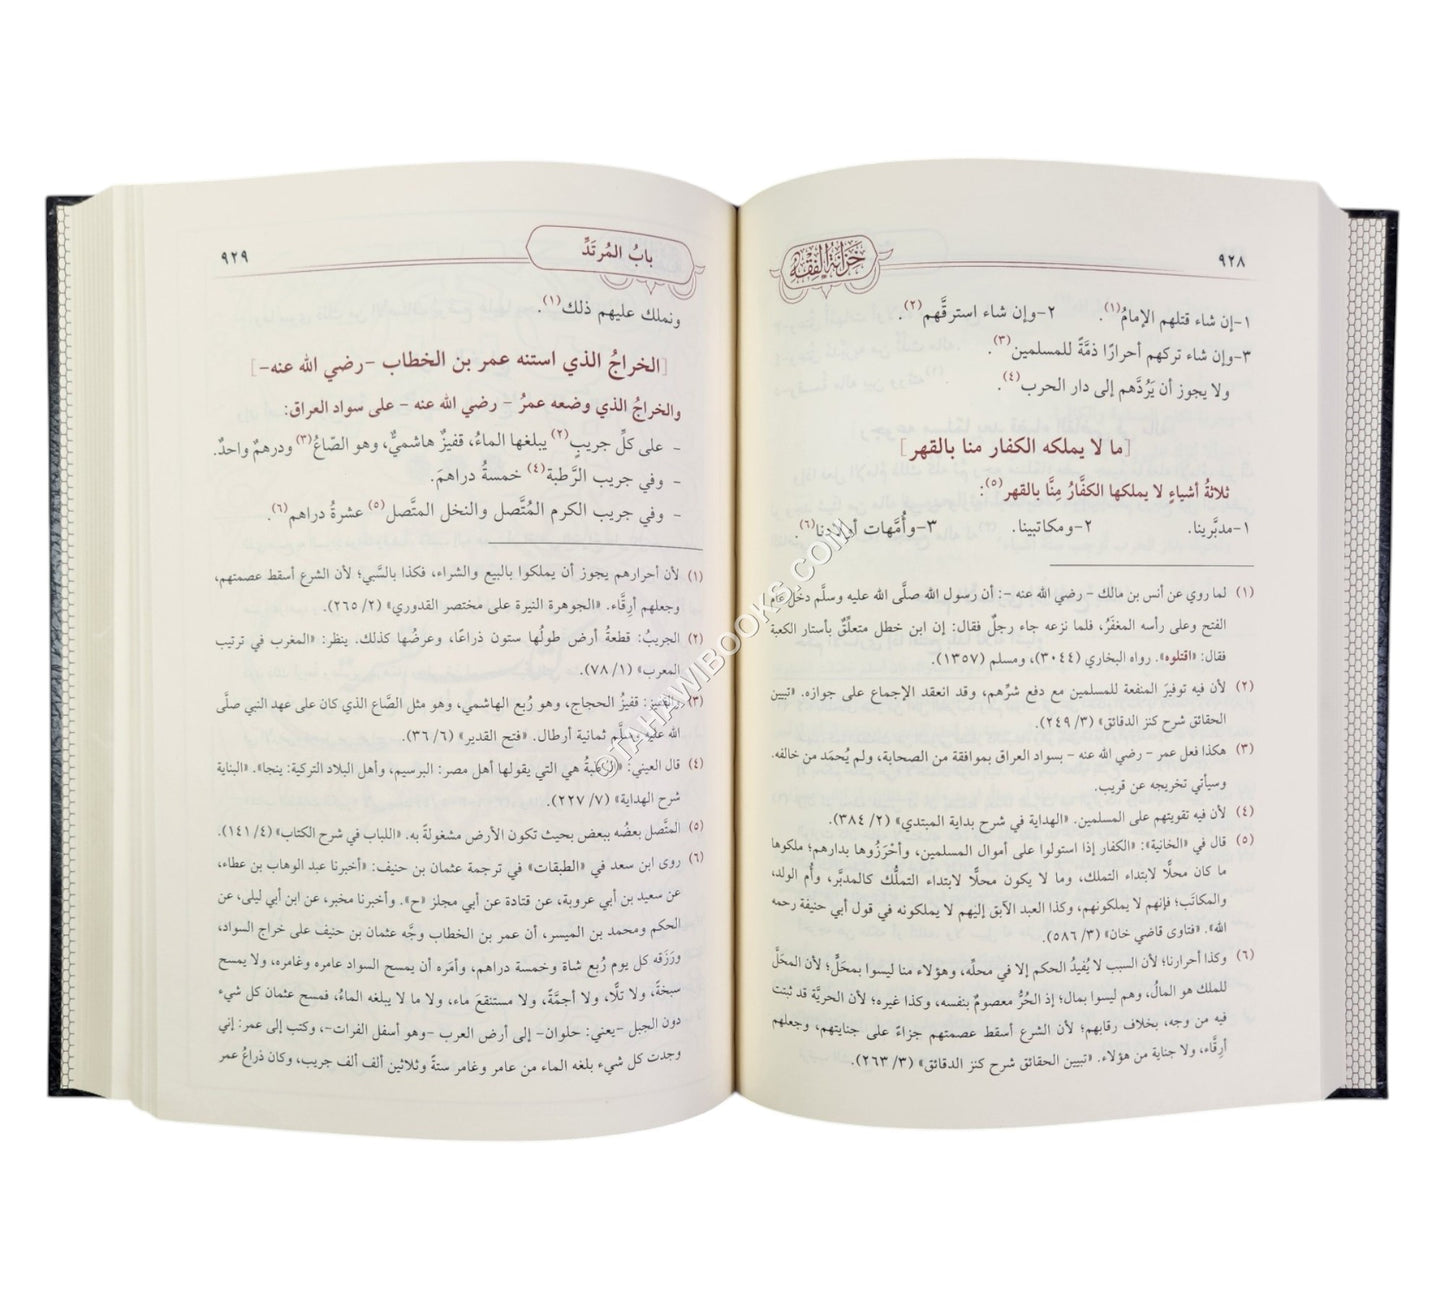 ٩٢٨
خزانة الفقه
١-إن شاء قتلهم الإمامُ(١). ٢-وإن شاء استرقَّهم(٢).
٣-وإن شاء تركهم أحرارًا ذمَّةً للمسلمين(٣).
ولا يجوز أن يَرُدَّهم إلى دار الحرب(٤).
[ما لا يملكه الكفار منا بالقهر]
ثلاثةُ أشياءٍ لا يملكها الكفَّارُ مِنَّا بالقهر(٥):
١-مدبَّرينا. ٢-ومكاتبينا. ٣-وأُمَّهات أولادنا(٦).
(١) لما روي عن أنس بن مالك - رضي الله عنه -: أن رسول الله صلَّى الله عليه وسلَّم دخل عام
الفتح وعلى رأسه المغفَرُ، فلما نزعه جاء رجلٌ فقال: إن ابن خطل متعلِّقٌ بأستار الكعبة
فقال: «اقتلوه». رواه البخاري (٣٠٤٤)، ومسلم (١٣٥٧).
(٢) لأن فيه توفيرَ المنفعة للمسلمين مع دفع شرِّهم، وقد انعقد الإجماع على جوازه. «تبيين
الحقائق شرح كنز الدقائق» (٣/ ٢٤٩).
(٣) هكذا فعل عمر - رضي الله عنه - بسواد العراق بموافقة من الصحابة، ولم يُحمَد من خالفه.
وسيأتي تخريجه عن قريب.
(٤) لأن فيه تقويتهم على المسلمين. «الهداية في شرح بداية المبتدي» (٢/ ٣٨٤).
(٥) قال في «الخانية»: «الكفار إذا استولوا على أموال المسلمين، وأحْرَزُوها بدارهم؛ ملكوها
ما كان محلًّا لابتداء التملك، وما لا يكون محلًّا لابتداء التملُّك كالمدبَّر، وأُم الولد،
والمكاتَب؛ فإنهم لا يملكونهم، وكذا العبد الآبق إليهم لا يملكونه في قول أبي حنيفة رحمه
الله». «فتاوى قاضي خان» (٣/ ٥٨٦).
(٦) وكذا أحرارنا؛ لأن السبب لا يُفيدُ الحكم إلا في محلِّه، وهؤلاء منا ليسوا بمحَلٍّ؛ لأن المحَلَّ
للملك هو المالُ، وهم ليسوا بمال؛ إذ الحُرُّ معصومٌ بنفسه، وكذا غيره؛ لأن الحريَّة قد ثبتت
فيه من وجه، بخلاف رقابهم؛ لأن الشرع أسقط عصمتهم جزاءً على جنايتهم، وجعلهم
أرِقَّاء، ولا جناية من هؤلاء. «تبيين الحقائق شرح كنز الدقائق» (٣/ ٢٦٣).
بابُ المُرتَدِّ
٩٢٩
ونملك عليهم ذلك(١).
[الخراجُ الذي استنه عمر بن الخطاب -رضي الله عنه-]
والخراجُ الذي وضعه عمرُ - رضي الله عنه - على سواد العراق:
- على كلِّ جريبٍ(٢) يبلغها الماءُ، قفيزٌ هاشميٌّ، وهو الصّاعُ(٣) ودرهمٌ واحدٌ.
- وفي جريب الرَّطبة(٤) خمسةُ دراهمَ.
- وفي جريب الكرم المُتَّصل والنخل المتَّصل(٥) عشرةُ دراهم(٦).
(١) لأن أحرارهم يجوز أن يملكوا بالبيع والشراء، فكذا بالسَّبي؛ لأن الشرع أسقط عصمتهم،
وجعلهم أرِقَّاء. «الجوهرة النيرة على مختصر القدوري» (٢/ ٢٦٥).
(٢) الجريبُ: قطعةُ أرض طولُها ستون ذراعًا، وعرضُها كذلك. ينظر: «المغرب في ترتيب
المعرب» (١/ ٧٨).
(٣) القفيز: قفيزُ الحجاج، وهو رُبع الهاشمي، وهو مثل الصَّاع الذي كان على عهد النبي صلَّى
الله عليه وسلَّم ثمانية أرطال. «فتح القدير» (٦/ ٣٦).
(٤) قال العيني: «الرَّطبةُ هي التي يقولها أهل مصر: البرسيم، وأهل البلاد التركية: ينجا». «البناية
شرح الهداية» (٧/ ٢٢٧).
(٥) المتَّصل بعضُه ببعض بحيث تكون الأرض مشغولةً به. «اللباب في شرح الكتاب» (٤/ ١٤١).
(٦) روى ابن سعد في «الطبقات» في ترجمة عثمان بن حنيف: «أخبرنا عبد الوهاب بن عطاء،
عن سعيد بن أبي عروبة، عن قتادة عن أبي مجلز «ح». وأخبرنا مخبر، عن ابن أبي ليلى، عن
الحكم ومحمد بن الميسر، أن عمر بن الخطاب وجَّه عثمان بن حنيف على خراج السواد،
ورَزَقه كل يوم رُبع شاة وخمسة دراهم، وأمَره أن يمسح السواد عامره وغامره، ولا يمسح
سبخةً، ولا تلًّا، ولا أجمَّةً، ولا مستنقعَ ماء، ولا ما لا يبلغه الماءُ، فمسح عثمان كل شيء
دون الجبل -يعني: حلوان- إلى أرض العرب -وهو أسفل الفرات-، وكتب إلى عمر: إني
وجدت كل شيء بلغه الماء من عامر وغامر ستةً وثلاثين ألف ألف جريب، وكان ذراعُ عمر
©TAHAWIBOOKS.COM